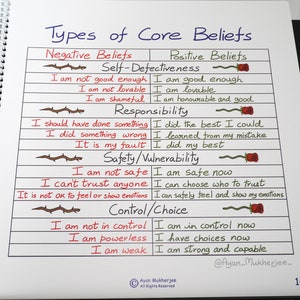 Types of Core Beliefs
Negative Beliefs Positive Beliefs
Self-Defectiveness
I am not good enough I am good enough
I am not lovable I am lovable
I am shameful I am honourable and good
Responsibility
I should have done something I did the best I could
I did something wrong I learned from my mistake
It is my fault I did my best
Safety/Vulnerability
I am not safe I am safe now
I can't trust anyone I can choose who to trust
It is not OK to feel or show emotions I can safely feel and show my emotions
Control/Choice
I am not in control I am in control now
I am powerless I have choices now
I am weak I am strong and capable
@Ayan_Mukherjee_
Ayan Mukherjee
©Copyrights Reserved
1